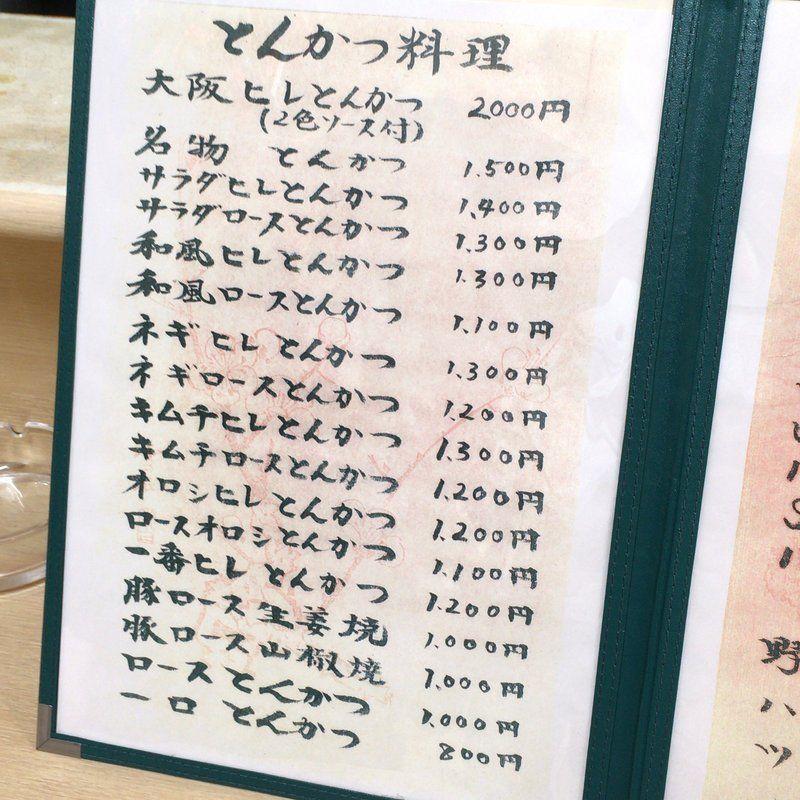 とんかつ料理
大阪ヒレとんかつ 2000円
(2色ソース付)
名物 とんかつ 1.500円
サラダヒレとんかつ 1,400円
サラダロースとんかつ 1.300円
和風ヒレとんかつ 1.300円
和風ロースとんかつ 1.100円
ネギヒレとんかつ 1.300円
ネギロースとんかつ 1.200円
キムチヒレとんかつ 1.300円
キムチロースとんかつ 1.200円
オロシヒレとんかつ 1.200円
ロースオロシとんかつ 1.100円
一番ヒレとんかつ 1.200円
豚ロース生姜焼 1.000円
豚ロース山椒焼 1.000円
ロースとんかつ 1.000円
一口とんかつ 800円
野
ハ
ツ